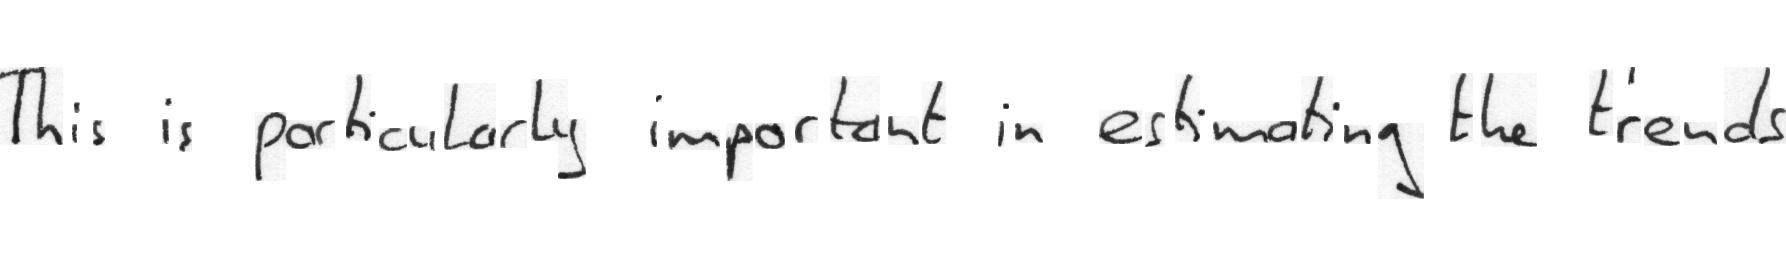 This is particularly important in estimating the trends